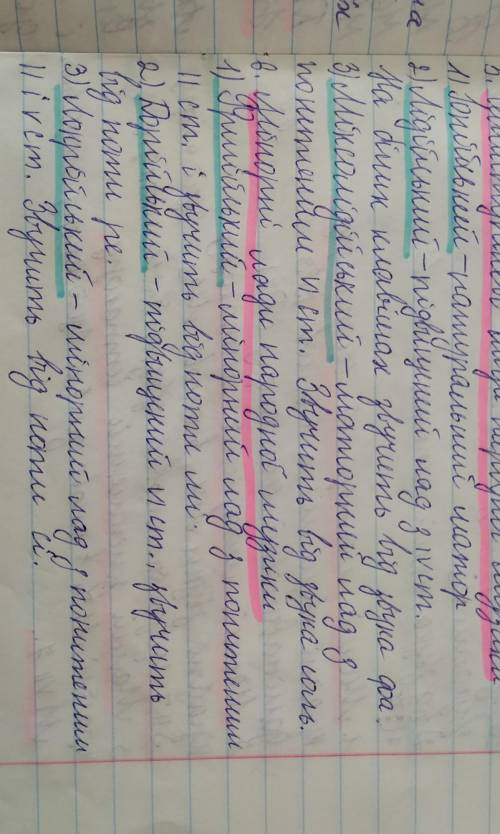 1) Іонійський – натуральний мажор
2) Лідійський – підвищений лад з IV ст.
На білих клавішах звучить від звука фа.
3) Міксолідійський – мажорний лад з
пониженим VII ст. Звучить від звука соль.
Мінорні лади народної музики
1) Фрігійський – мінорний лад з пониженим
II ст. і звучить від ноти мі.
2) Дорійський – підвищений VI ст., звучить
від ноти ре.
3) Локрійський – мінорний лад з пониженим
II і V ст. Звучить від ноти сі.